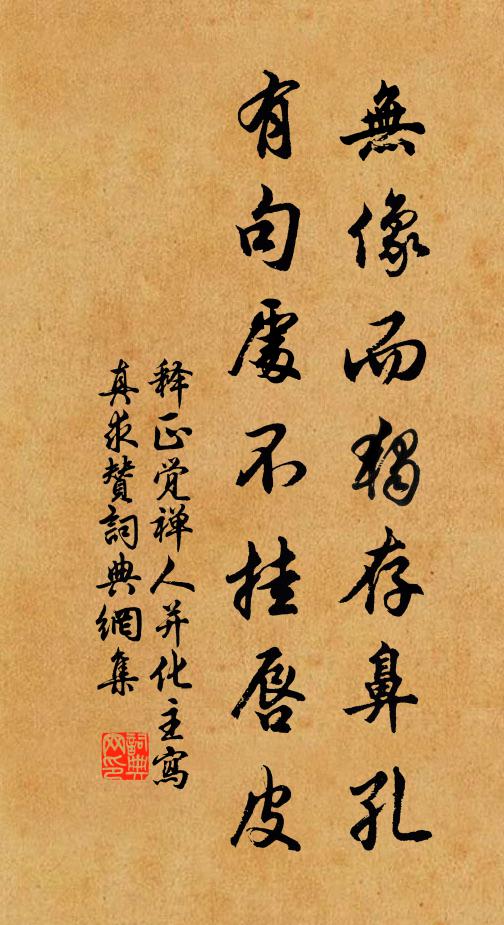 無像而独存鼻孔
有句處不挂唇皮
释正觉禅人并化主寫
真求赞詞典網集
詞典網印